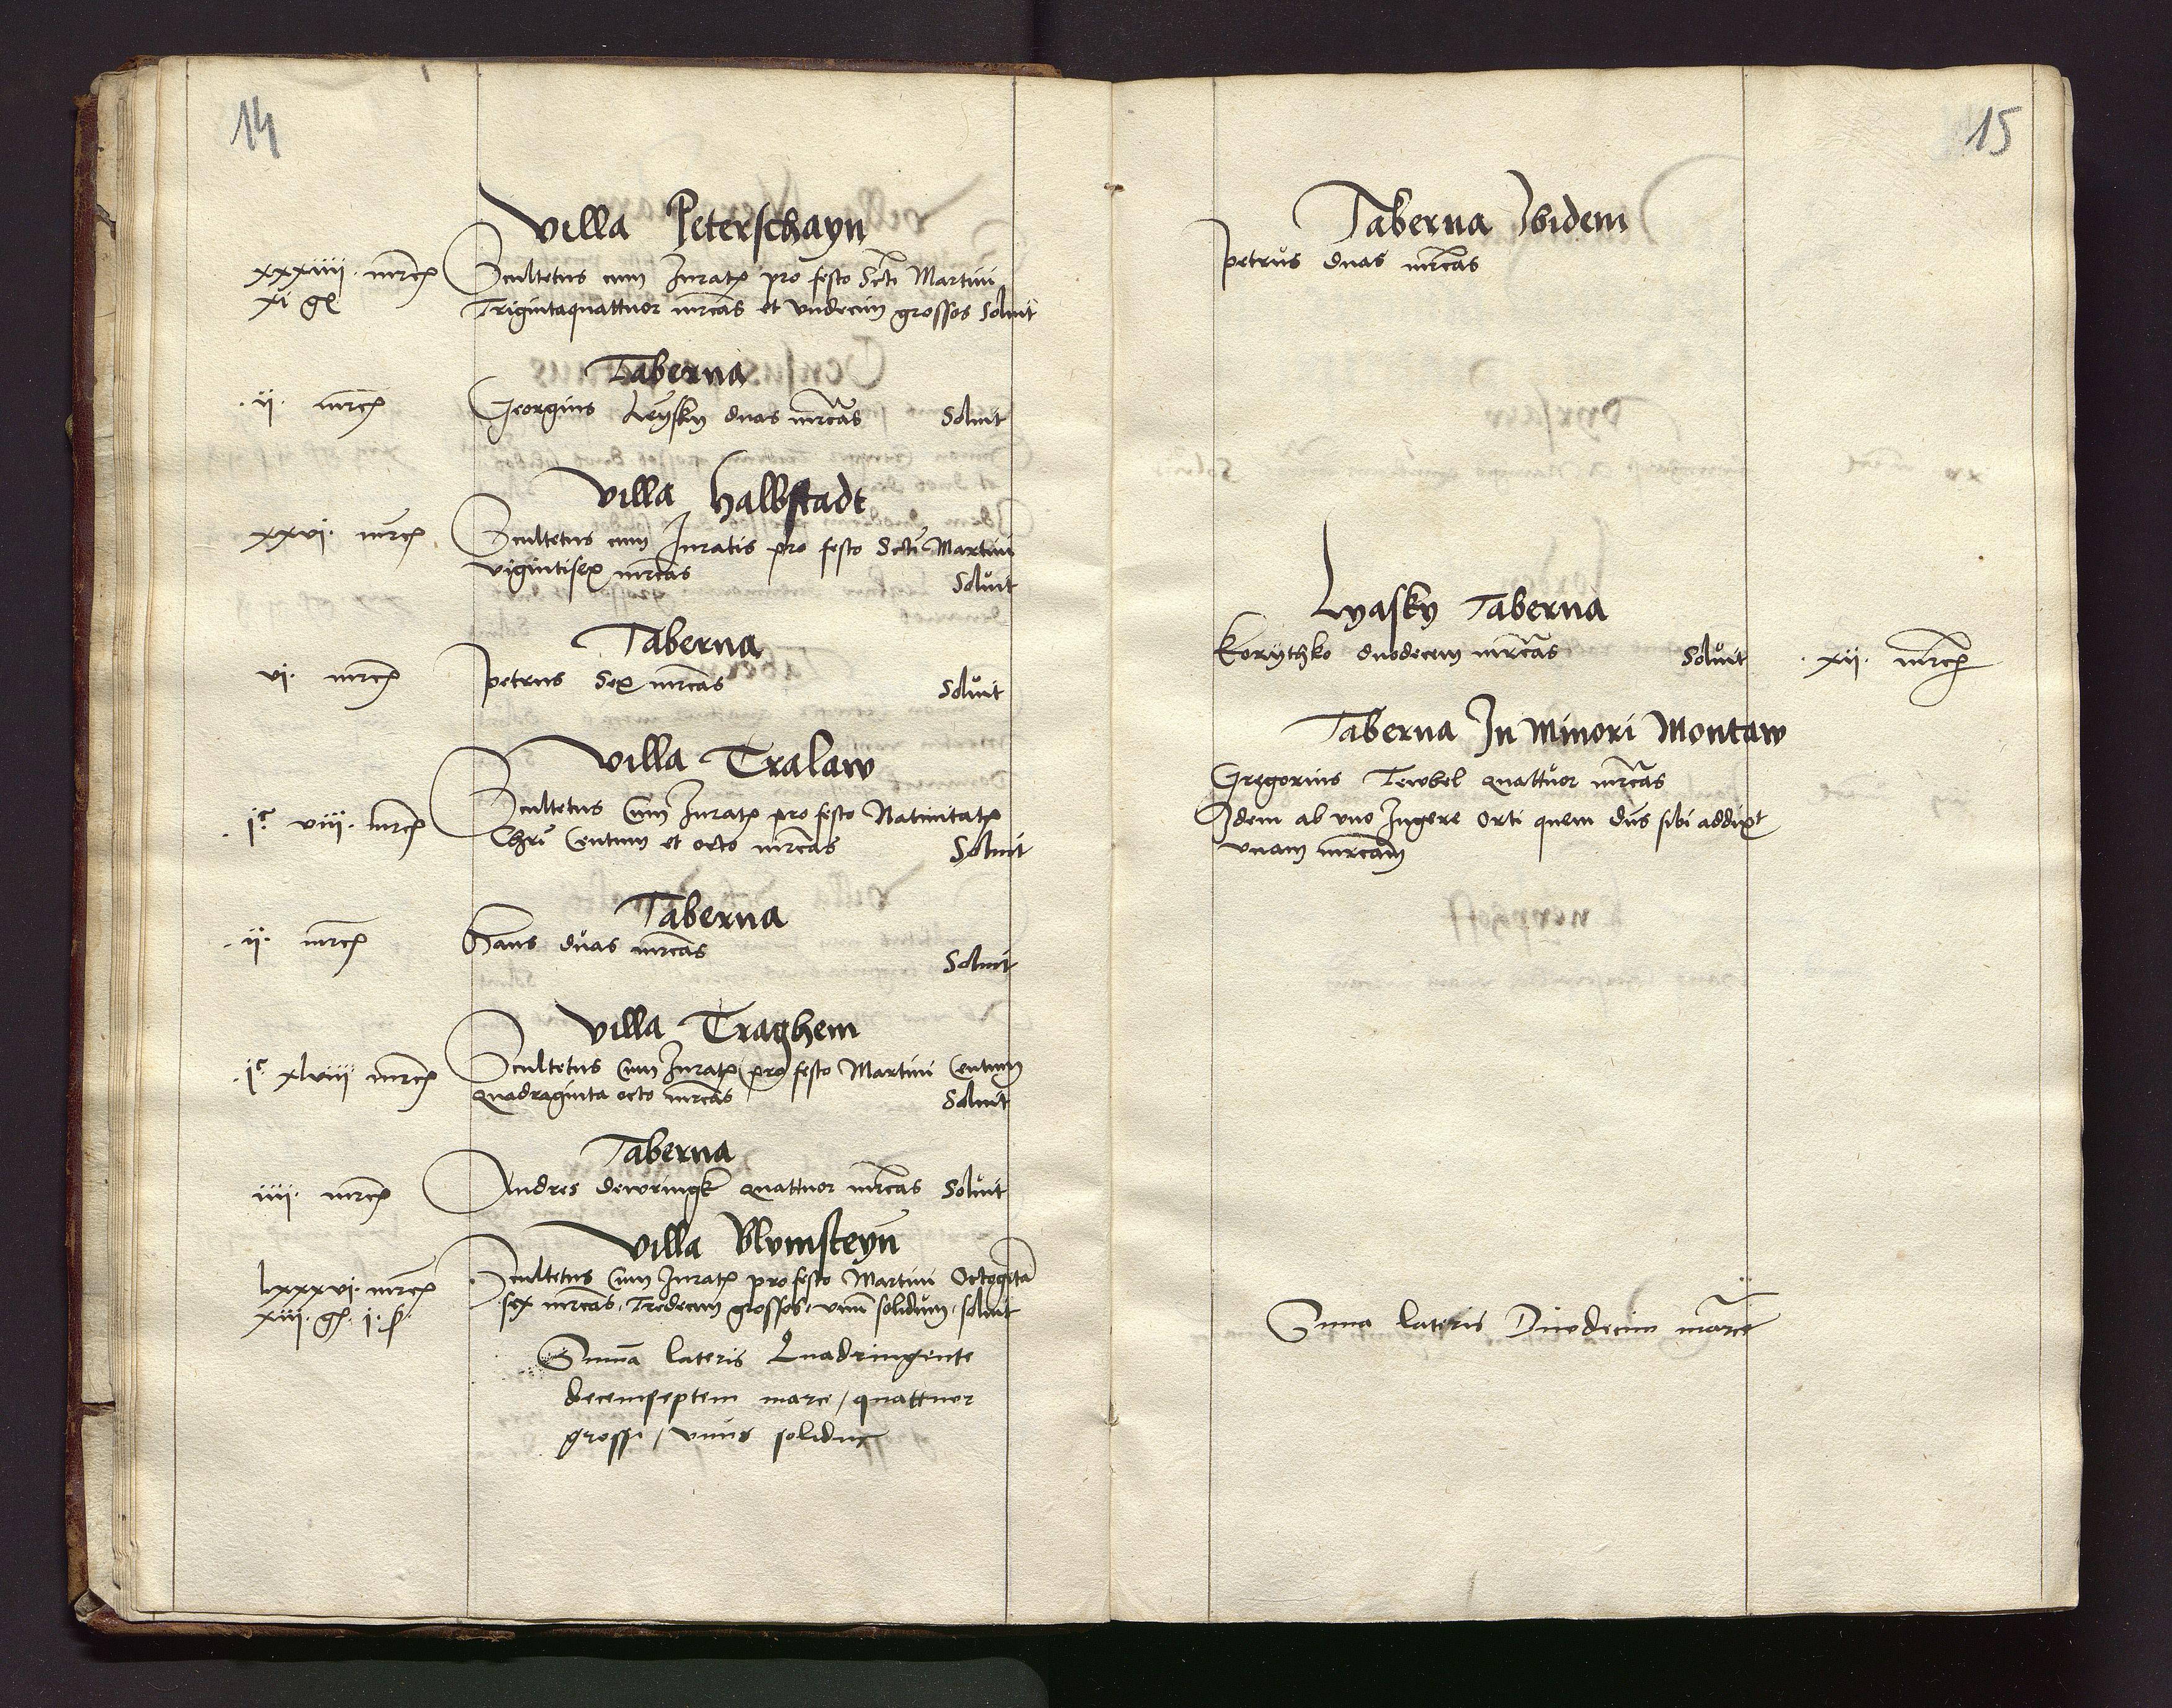 14
Villa Peterschayn
xxxiiii mrcꝭ Scultetus cum Juratꝭ pro festo Scti Martini
xi gꝭ Trigintaquattuor mrcas et vndecim grossos Soluit
Taberna
ii mrcꝭ Georgius Leysky duas mrcas Soluit
Villa Halbstadt
xxvi mrcꝭ Scultetus cum Juratis pro festo Scti Martini
vigintisex mrcas Soluit
Taberna
vi mrcꝭ petrus Sex mrcas Soluit
Villa Tralaw
jᶜ viii mrcꝭ Scultetus Cum Juratꝭ pro festo Natiuitatꝭ
Chri Centum et octo mrcas Soluit
Taberna
ii mrcꝭ Hans duas mrcas Soluit
Villa Traghem
jᶜ xlviii mrcꝭ Scultetus Cum Juratꝭ pro festo Martini Centum
quadraginta octo mrcas Soluit
Taberna
iiii mrcꝭ Andres dewringk quattuor mrcas Soluit
Villa Blumsteyn
lxxxvi mrcꝭ Scultetus Cum Juratꝭ pro festo Martini Octogīta
xiii gꝭ i ß sex mrcas, Tredecim grossos, vnū solidum, soluit
Suma lateris Quadringente
decemseptem marce / quattuor
grossi / vnus solidus
15
Taberna Ibidem
petrus duas mrcas
Lyasky Taberna
Korythko duodecim mrcas Soluit xii mrcꝭ
Taberna In Minori Montaw
Gregorius Tewbel quattuor mrcas
Idem ab vno Jugere Orti quem dns sibi addixt
vnam mrcam
Suma lateris Duodecim marce